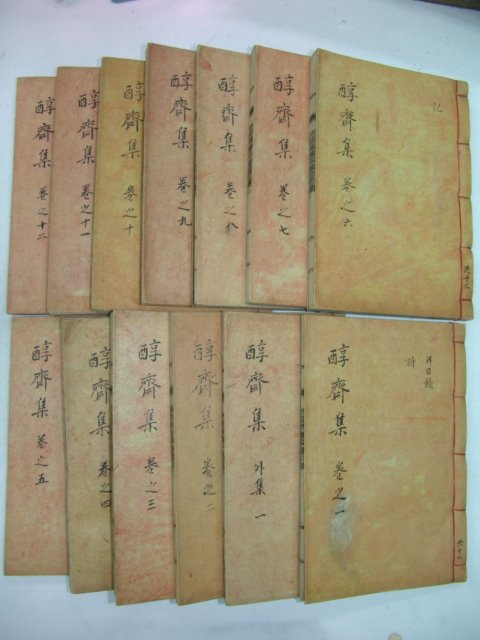 醇齋集 卷之十二
醇齋集 卷之十一
醇齋集 卷之十
醇齋集 卷之九
醇齋集 卷之八
醇齋集 卷之七
醇齋集 卷之六
記
共十二
醇齋集 卷之五
醇齋集 卷之四
醇齋集 卷之三
醇齋集 卷之二
醇齋集 外集 一
醇齋集 卷之一
詩
并目錄